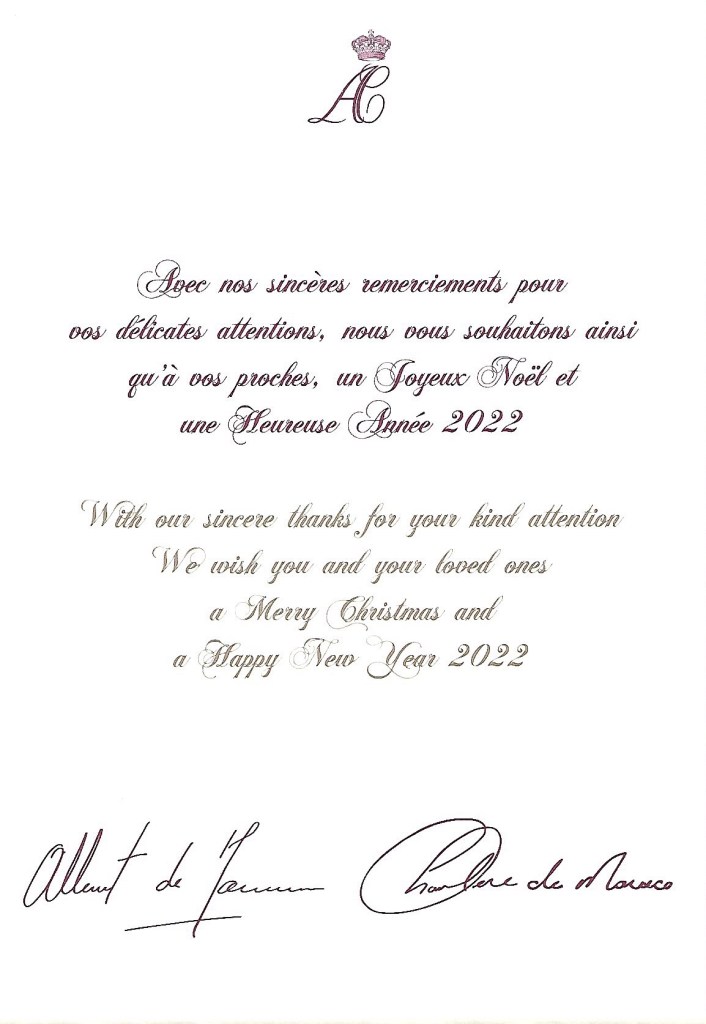 AC
Avec nos sincères remerciements pour
vos délicates attentions, nous vous souhaitons ainsi
qu'à vos proches, un Joyeux Noël et
une Heureuse Année 2022
With our sincere thanks for your kind attention
We wish you and your loved ones
a Merry Christmas and
a Happy New Year 2022
Albert de Monaco Charlene de Monaco